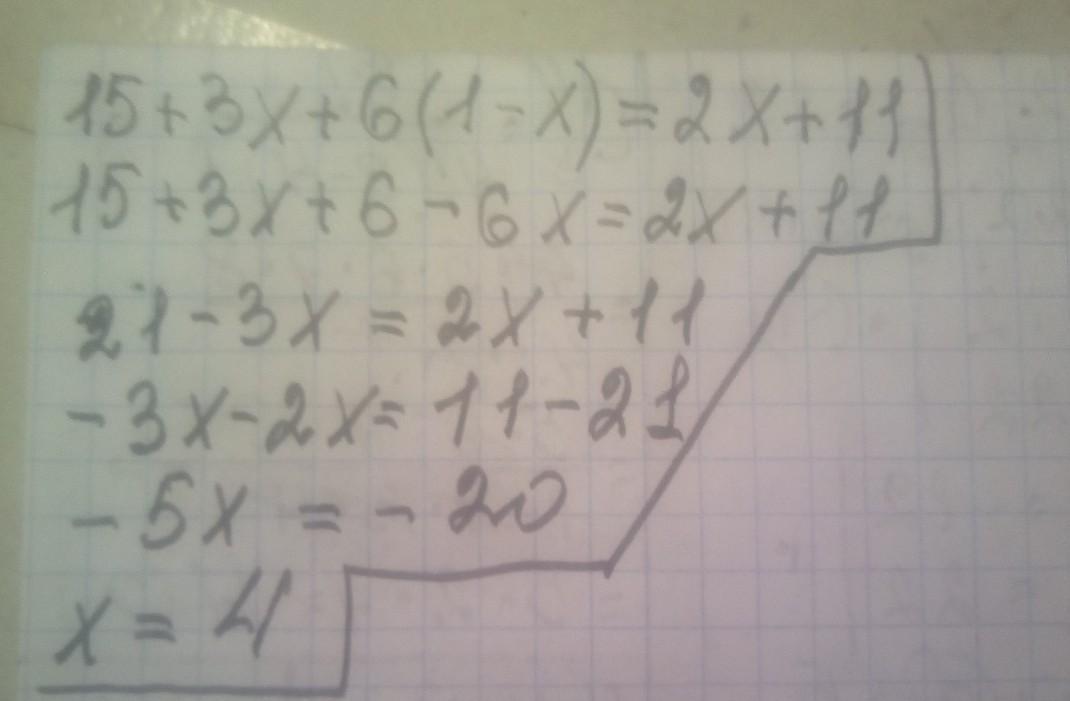 15+3x+6(1-x)=2x+11
15+3x+6-6x=2x+11
21-3x=2x+11
-3x-2x=11-21
-5x=-20
x=4